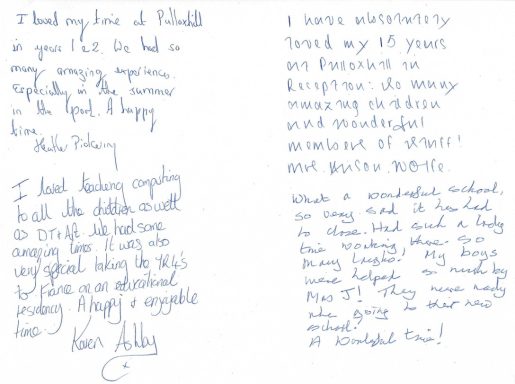 I loved my time at Pulloxhill
in years 1&2. We had so
many amazing experience.
Especially in the summer
in the pool. A happy
time.
Heather Pickering
I loved teaching computing
to all the children as well
as DT + Art. We had some
amazing times. It was also
very special taking the YR4's
to France on an educational
residency. A happy & enjoyable
time.
Karen Ashby
x
I have absolutely
loved my 15 years
at Pulloxhill in
Reception. So many
amazing children
and wonderful
members of staff!
Mrs. Wolfe.
What a wonderful school,
so very sad it has had
to close. Had such a lovely
time working there. So
many laughs. My boys
were helped so much by
Mrs J! They were ready
going to their new
school!
A wonderful time!